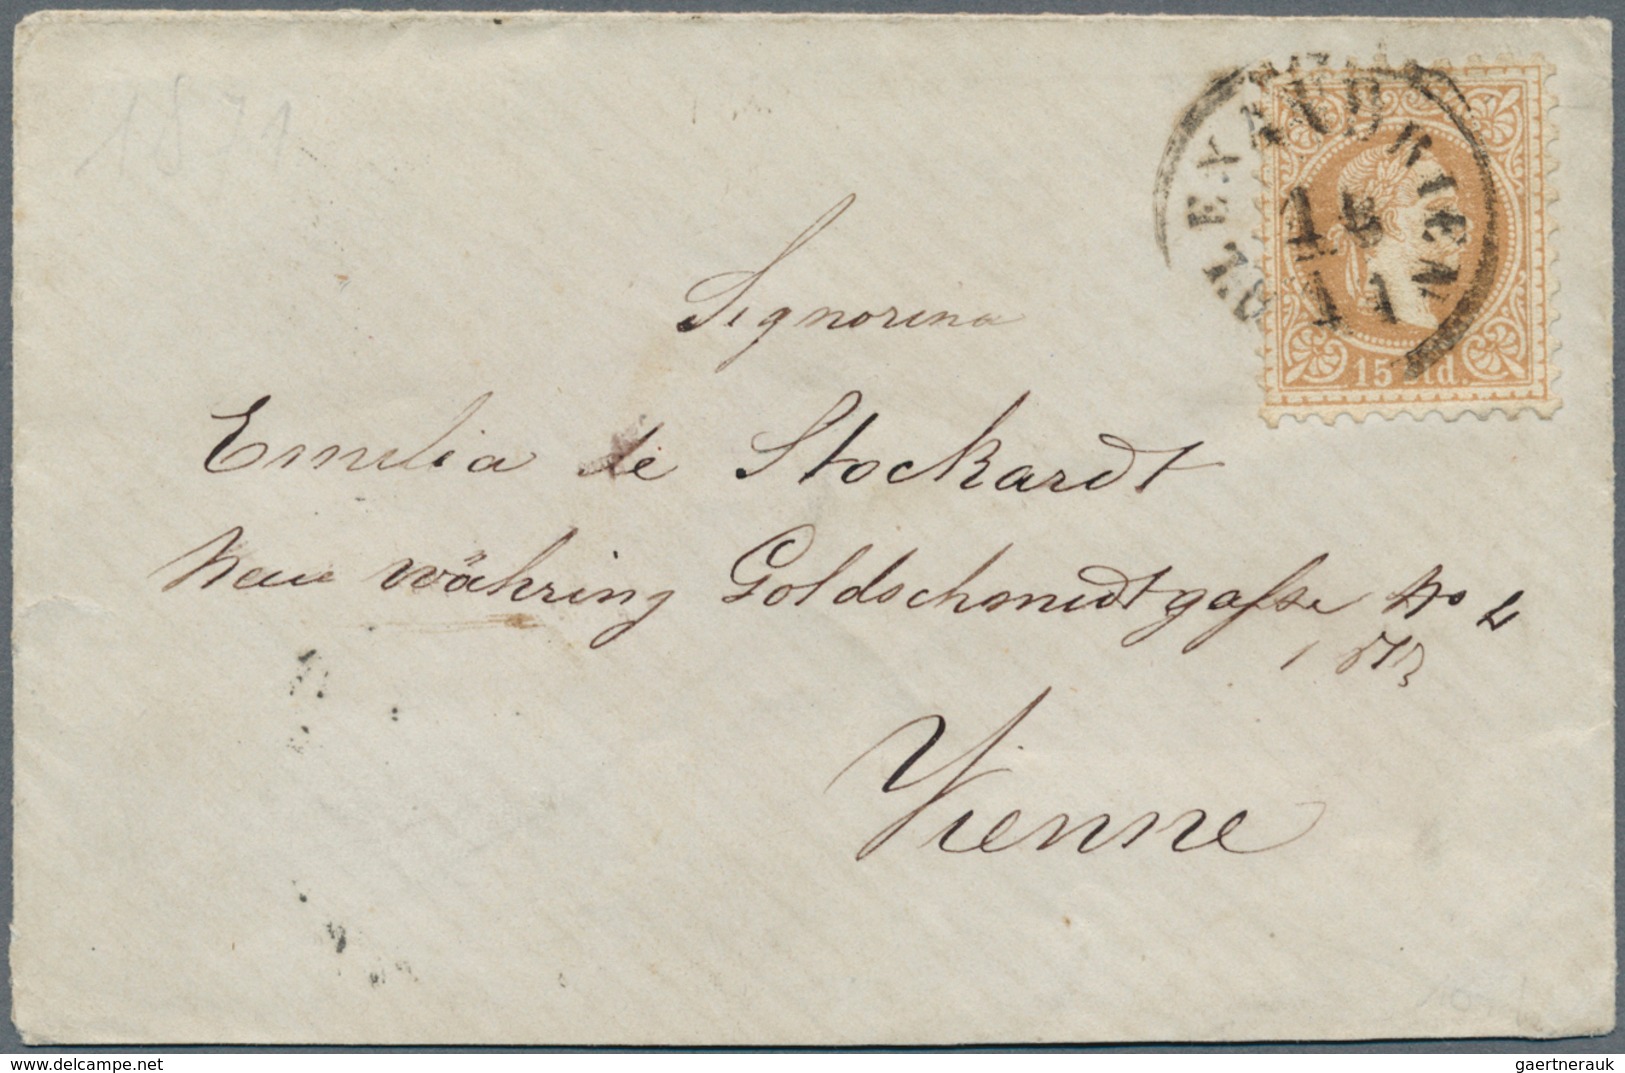 1871
ALEXANDRIEN
18
11
15 sld.
Signorina
Emilia de Stockardt
Neu währing Goldschmidtgasse No 4
Vienne
gaertnerauk